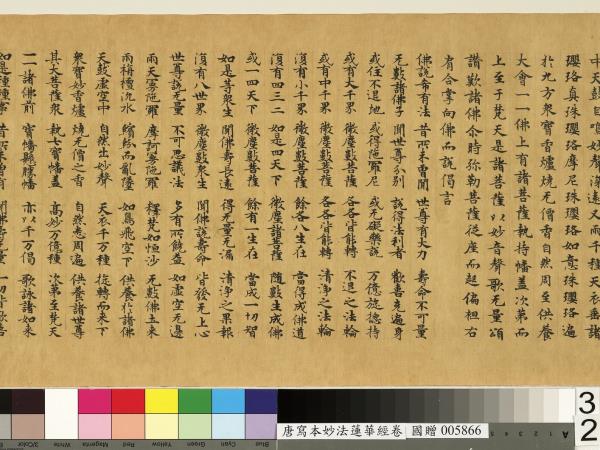 中天鼓自鳴妙聲深遠又雨千種天衣垂諸
瓔珞真珠瓔珞摩尼珠瓔珞如意珠瓔珞遍
於九方衆寶香爐燒无價香自然周至供養
大會一一佛上有諸菩薩執持幡蓋次第而
上至于梵天是諸菩薩以妙音聲歌无量頌
讚歎諸佛尒時弥勒菩薩從座而起偏袒右
肩合掌向佛而說偈言
佛說希有法 昔所未曾聞 世尊有大力 壽命不可量
无數諸佛子 聞世尊分別 說得法利者 歡喜充遍身
或住不退地 或得陁羅尼 或无礙樂說 万億旋揔持
或有大千界 微塵數菩薩 各各皆能轉 不退之法輪
或有中千界 微塵數菩薩 各各皆能轉 清淨之法輪
復有小千界 微塵數菩薩 餘各八生在 當得成佛道
復有四三二 如是四天下 微塵諸菩薩 隨數生成佛
或一四天下 微塵數菩薩 餘有一生在 當成一切智
如是等衆生 聞佛壽長遠 得无量无漏 清淨之果報
復有八世界 微塵數衆生 聞佛說壽命 皆發无上心
世尊說无量 不可思議法 多有所饒益 如虛空无邊
雨天曼陁羅 摩訶曼陁羅 釋梵如恒沙 无數佛土來
雨栴檀沉水 繽紛而亂墜 如鳥飛空下 供養於諸佛
天鼓虛空中 自然出妙聲 天衣千万種 旋轉而來下
衆寶妙香爐 燒无價之香 自然悉周遍 供養諸世尊
其大菩薩衆 執七寶幡蓋 高妙万億種 次第至梵天
一一諸佛前 寶幢懸勝幡 亦以千万偈 歌詠諸如來
如是種種事 昔所未曾有 聞佛壽无量 一切皆歡喜
3/Color White Magenta Red Yellow Green Cyan Blue
唐寫本妙法蓮華經卷 國贈 005866
A
3
2